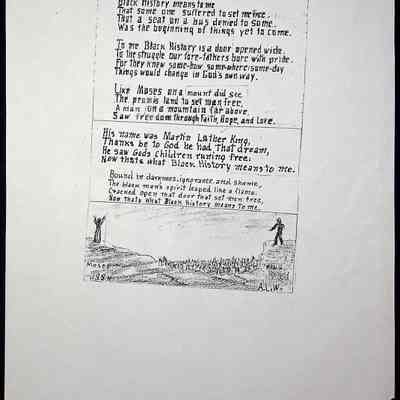 Black History means to me
That some one suffered to set me free.
That a seat on a bus denied to some.
Was the beginning of things yet to come.
To me Black History is a door opened wide.
To the struggle our fore-fathers bore with pride.
For they knew some-how some-where some-day
Things would change in God's own way.
Like Moses on a mount did see
The promis land to set man free,
A man on a mountain far above,
Saw freedom through Faith, Hope, and Love.
His name was Martin Luther King,
Thanks be to God he had That dream,
He saw God's children runing free.
Now thats what Black History means to me.
Bound in darkness, ignorance, and shame,
The black man's spirit leaped like a flame.
Cracked open that door that set men free,
Now thats what Black History means To me.
Moses
A.L.W.